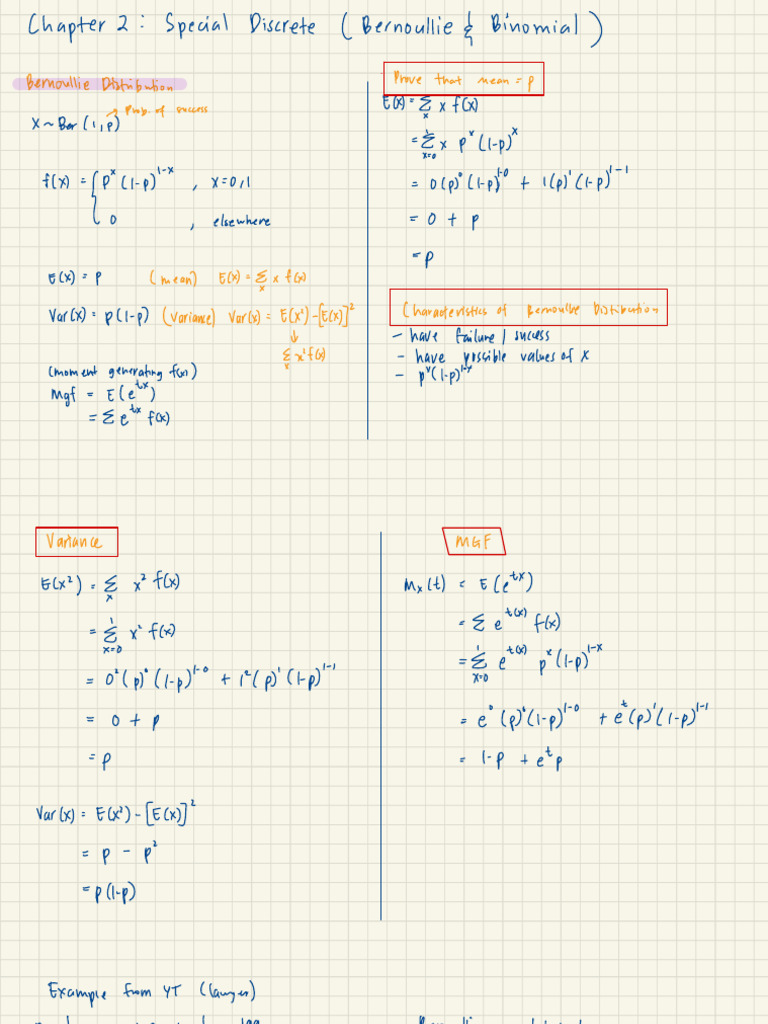 Chapter 2: Special Discrete (Bernoullie & Binomial)
Bernoullie Distribution
→ Prob. of success
X ~ Ber (1, p)
f(x) = { p^x (1-p)^{1-x} , x = 0, 1
0 , elsewhere
E(x) = p (mean) E(x) = Σ_x x f(x)
Var(x) = p(1-p) (Variance) Var(x) = E(x²) - [E(x)]²
↓
Σ_x x² f(x)
(moment generating f(x))
Mgf = E(e^{tx})
= Σ e^{tx} f(x)
Prove that mean = p
E(x) = Σ_x x f(x)
= Σ_{x=0}^{1} x p^x (1-p)^x
= 0(p)^0 (1-p)^{1-0} + 1(p)^1 (1-p)^{1-1}
= 0 + p
= p
Characteristics of Bernoullie Distribution
- have failure / success
- have possible values of x
- p^x (1-p)^{1-x}
Variance
E(x²) = Σ_x x² f(x)
= Σ_{x=0}^{1} x² f(x)
= 0² (p)^0 (1-p)^{1-0} + 1² (p)^1 (1-p)^{1-1}
= 0 + p
= p
Var(x) = E(x²) - [E(x)]²
= p - p²
= p(1-p)
MGF
M_x(t) = E(e^{tx})
= Σ e^{t(x)} f(x)
= Σ_{x=0}^{1} e^{t(x)} p^x (1-p)^{1-x}
= e^0 (p)^0 (1-p)^{1-0} + e^t (p)^1 (1-p)^{1-1}
= 1-p + e^t p
Example from YT (lawyer)